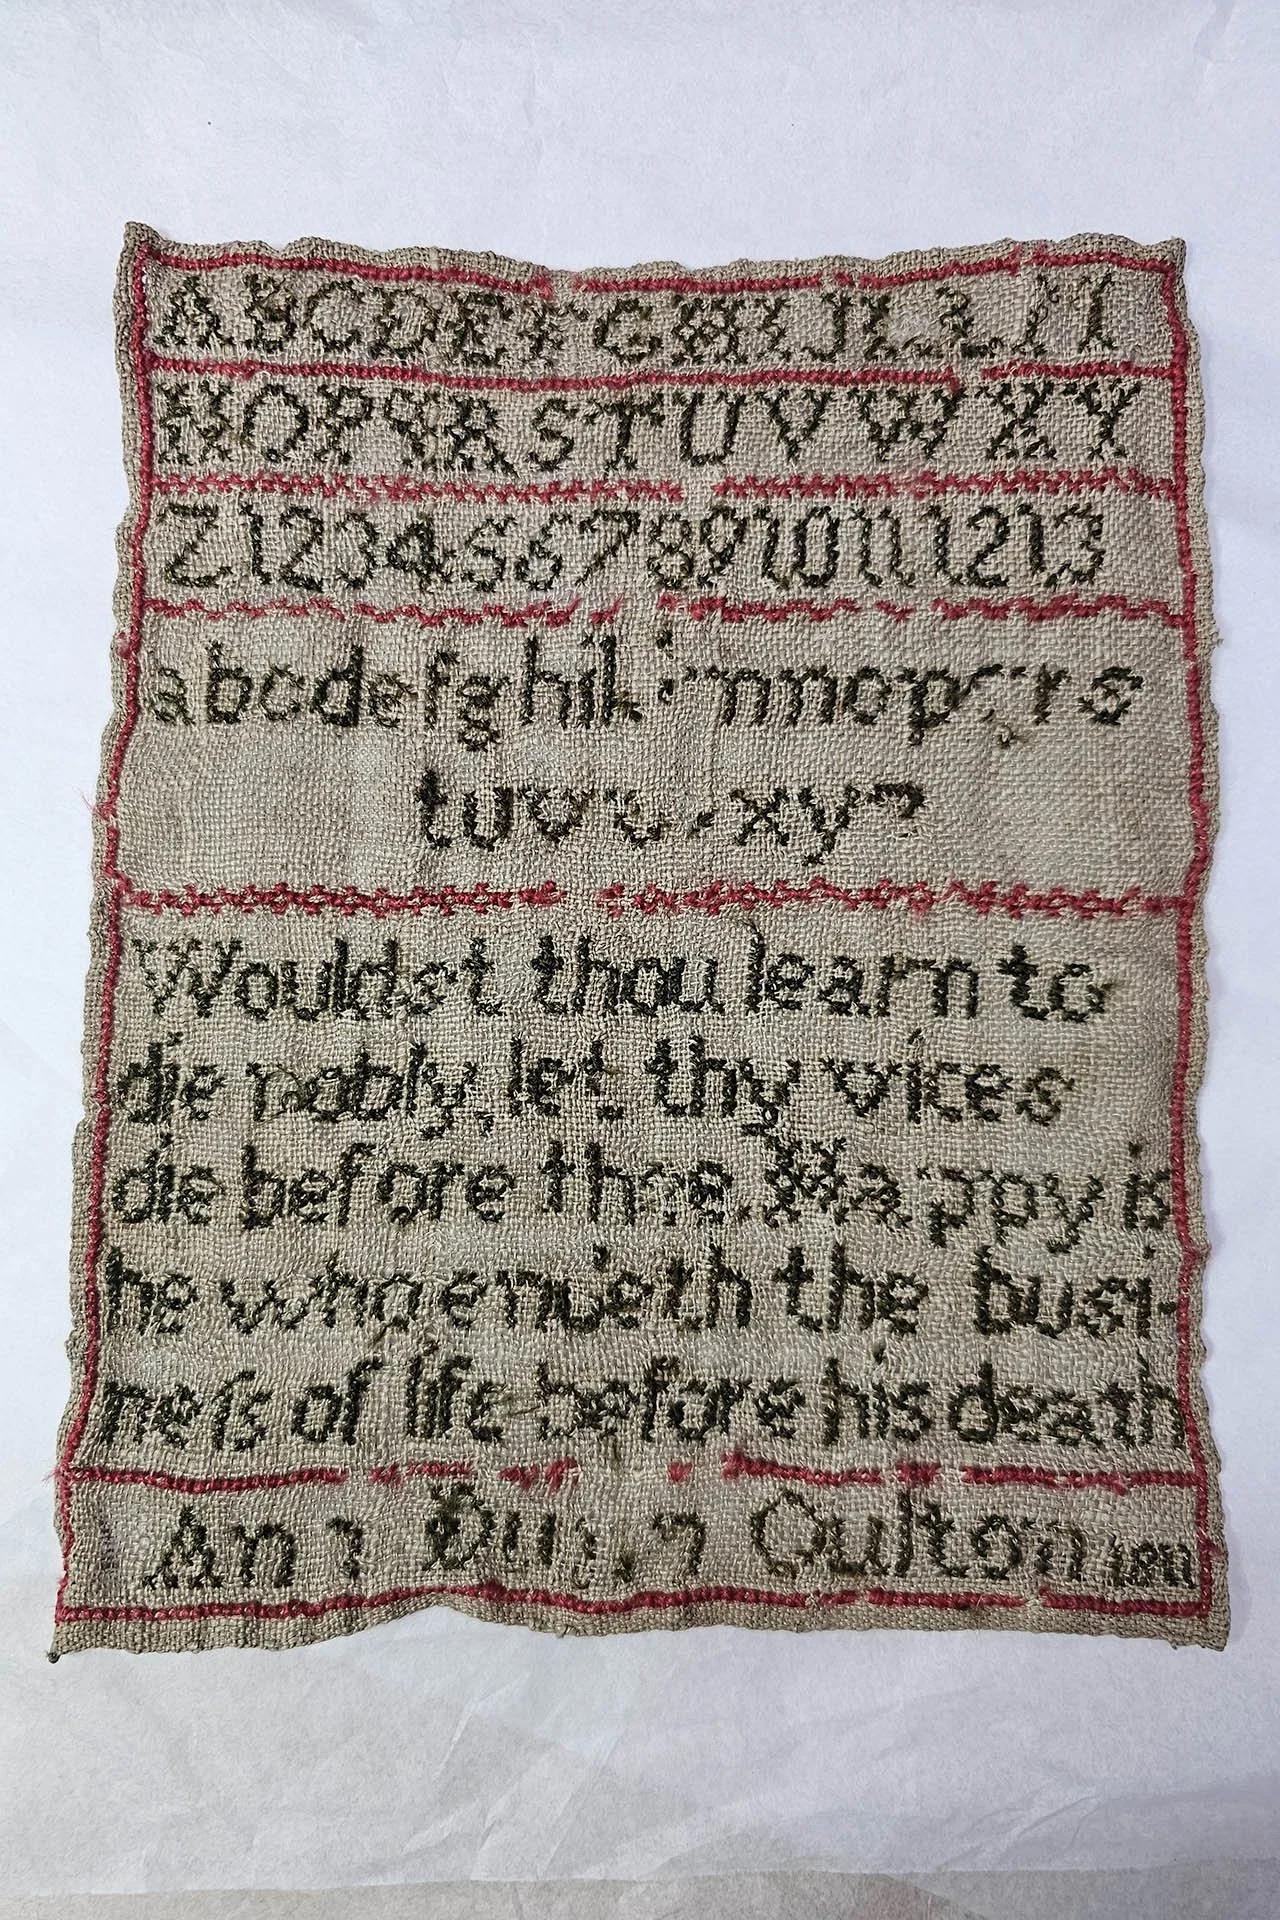 ABCDEFGHIJKLM
NOPQRSTUVWXY
Z12345678910111213
abcdefghiklmnopqrs
tuvwxyz
Wouldst thou learn to
die nobly, let thy vices
die before thee. Happy is
he who endeth the busi-
neſs of life before his death
Ann Oulton 1811